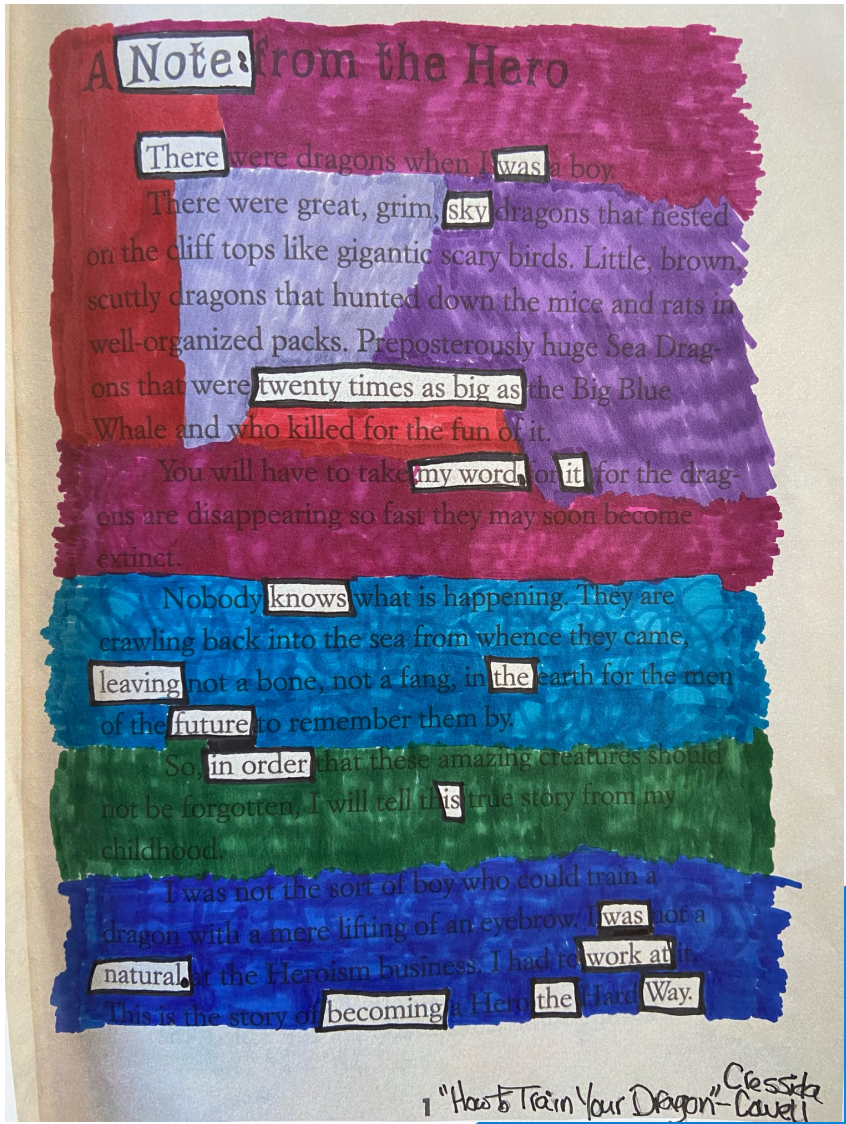 A Note: from the Hero
There were dragons when I was a boy.
There were great, grim, sky dragons that nested
on the cliff tops like gigantic scary birds. Little, brown,
scuttly dragons that hunted down the mice and rats in
well-organized packs. Preposterously huge Sea Drag-
ons that were twenty times as big as the Big Blue
Whale and who killed for the fun of it.
You will have to take my word. for it, for the drag-
ons are disappearing so fast they may soon become
extinct.
Nobody knows what is happening. They are
crawling back into the sea from whence they came,
leaving not a bone, not a fang, in the earth for the men
of the future to remember them by.
So, in order that these amazing creatures should
not be forgotten, I will tell this true story from my
childhood.
I was not the sort of boy who could train a
dragon with a mere lifting of an eyebrow. I was not a
natural. at the Heroism business. I had to work at it.
This is the story of becoming a Hero the Hard Way.
1 "How to Train Your Dragon" – Cressida
Cowell